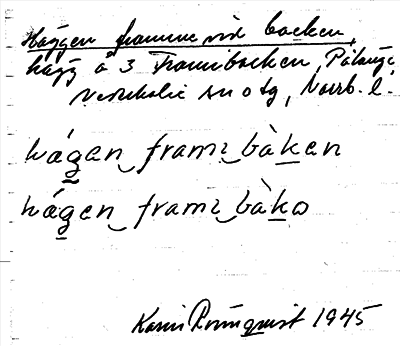 Häggen framme vid backen,
hägg å 3 Frambacken, Pålänge
Nederkalix sn o tg, Norrb. l.
hág̲en framı bàk̲en
hág̲en framı bàk̲o
Karin Rönnquist 1945